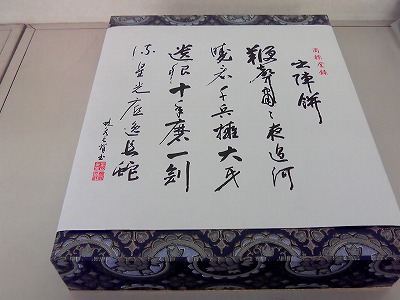 商標登録
出陣餅
鞭聲粛々夜過河
暁見千兵擁大牙
遺恨十年磨一剣
流星光底逸長蛇